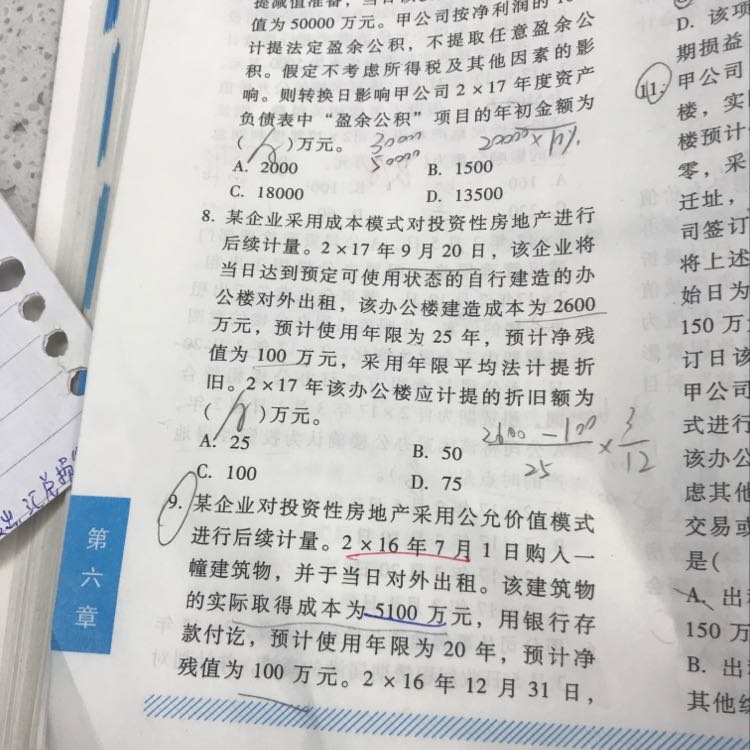 提减值准备，当日该
值为50000万元。甲公司按净利润的10
计提法定盈余公积，不提取任意盈余公
积。假定不考虑所得税及其他因素的影
响。则转换日影响甲公司2×17年度资产
负债表中“盈余公积”项目的年初金额为
( )万元。 30000 20000×10%
50000
A. 2000 B. 1500
C. 18000 D. 13500
8. 某企业采用成本模式对投资性房地产进行
后续计量。2×17年9月20日，该企业将
当日达到预定可使用状态的自行建造的办
公楼对外出租，该办公楼建造成本为2600
万元，预计使用年限为25年，预计净残
值为100万元，采用年限平均法计提折
旧。2×17年该办公楼应计提的折旧额为
( )万元。
2600-100 3
A. 25 B. 50 ×
25 12
C. 100 D. 75
9. 某企业对投资性房地产采用公允价值模式
进行后续计量。2×16年7月1日购入一
幢建筑物，并于当日对外出租。该建筑物
的实际取得成本为5100万元，用银行存
款付讫，预计使用年限为20年，预计净
残值为100万元。2×16年12月31日，
第
六
章
D. 该项
期损益
11. 甲公司
楼，实
楼预计
零，采
迁址，
司签订
将上述
始日为
150万
订日该
甲公司
式进行
该办公
虑其他
交易或
是(
A. 出租
150万
B. 出租
其他综